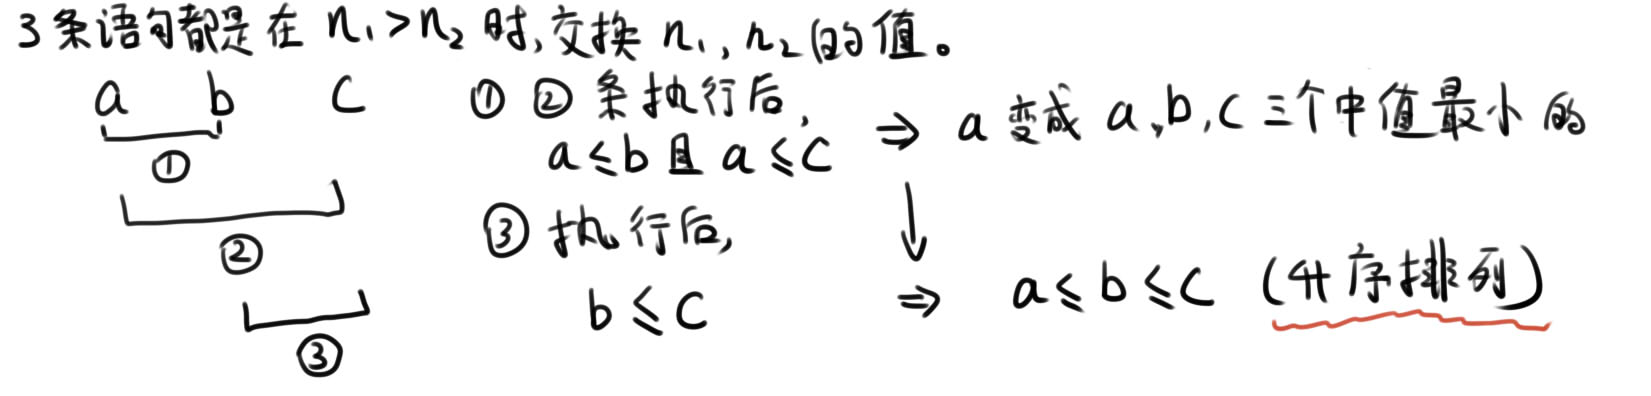 3条语句都是在 n₁>n₂ 时,交换 n₁,n₂的值。
a b c
①
②
③
①②条执行后,
a≤b且a≤c
⇒ a变成a,b,c三个中值最小的
③执行后,
↓
b≤c
⇒ a≤b≤c (升序排列)